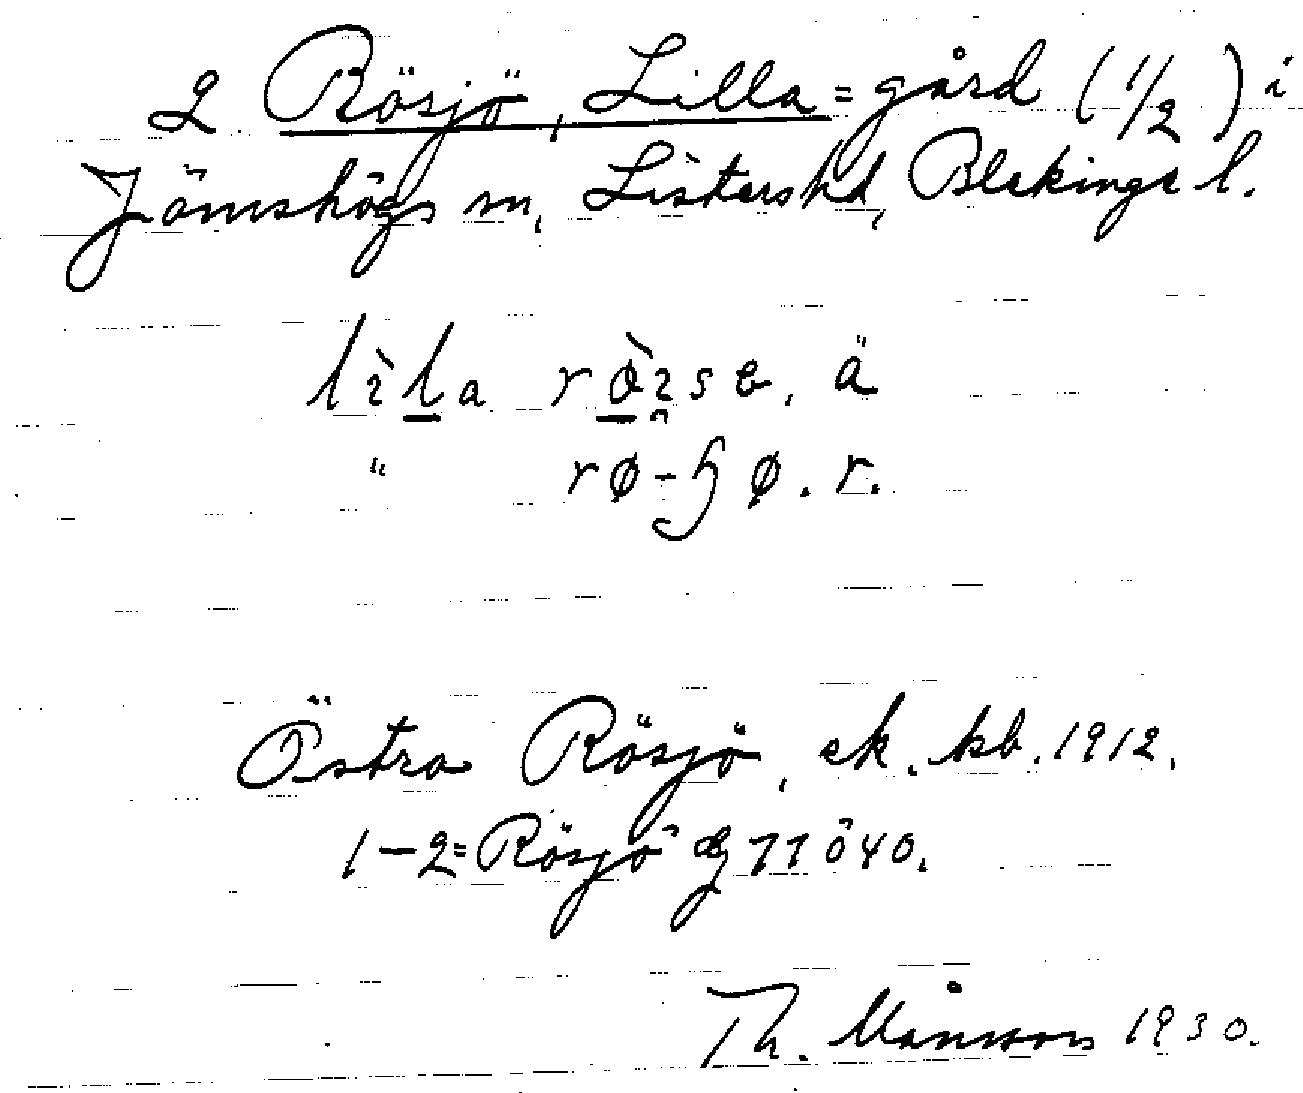 2 Rösjö, Lilla = gård (1/2) i
Jämshögs sn, Listers hd, Blekinge l.
lìla 
" rø-ɧø. r.
Östra Rösjö, ek. kb. 1912.
1-2 = Rösjö
Th. Månsson 1930.